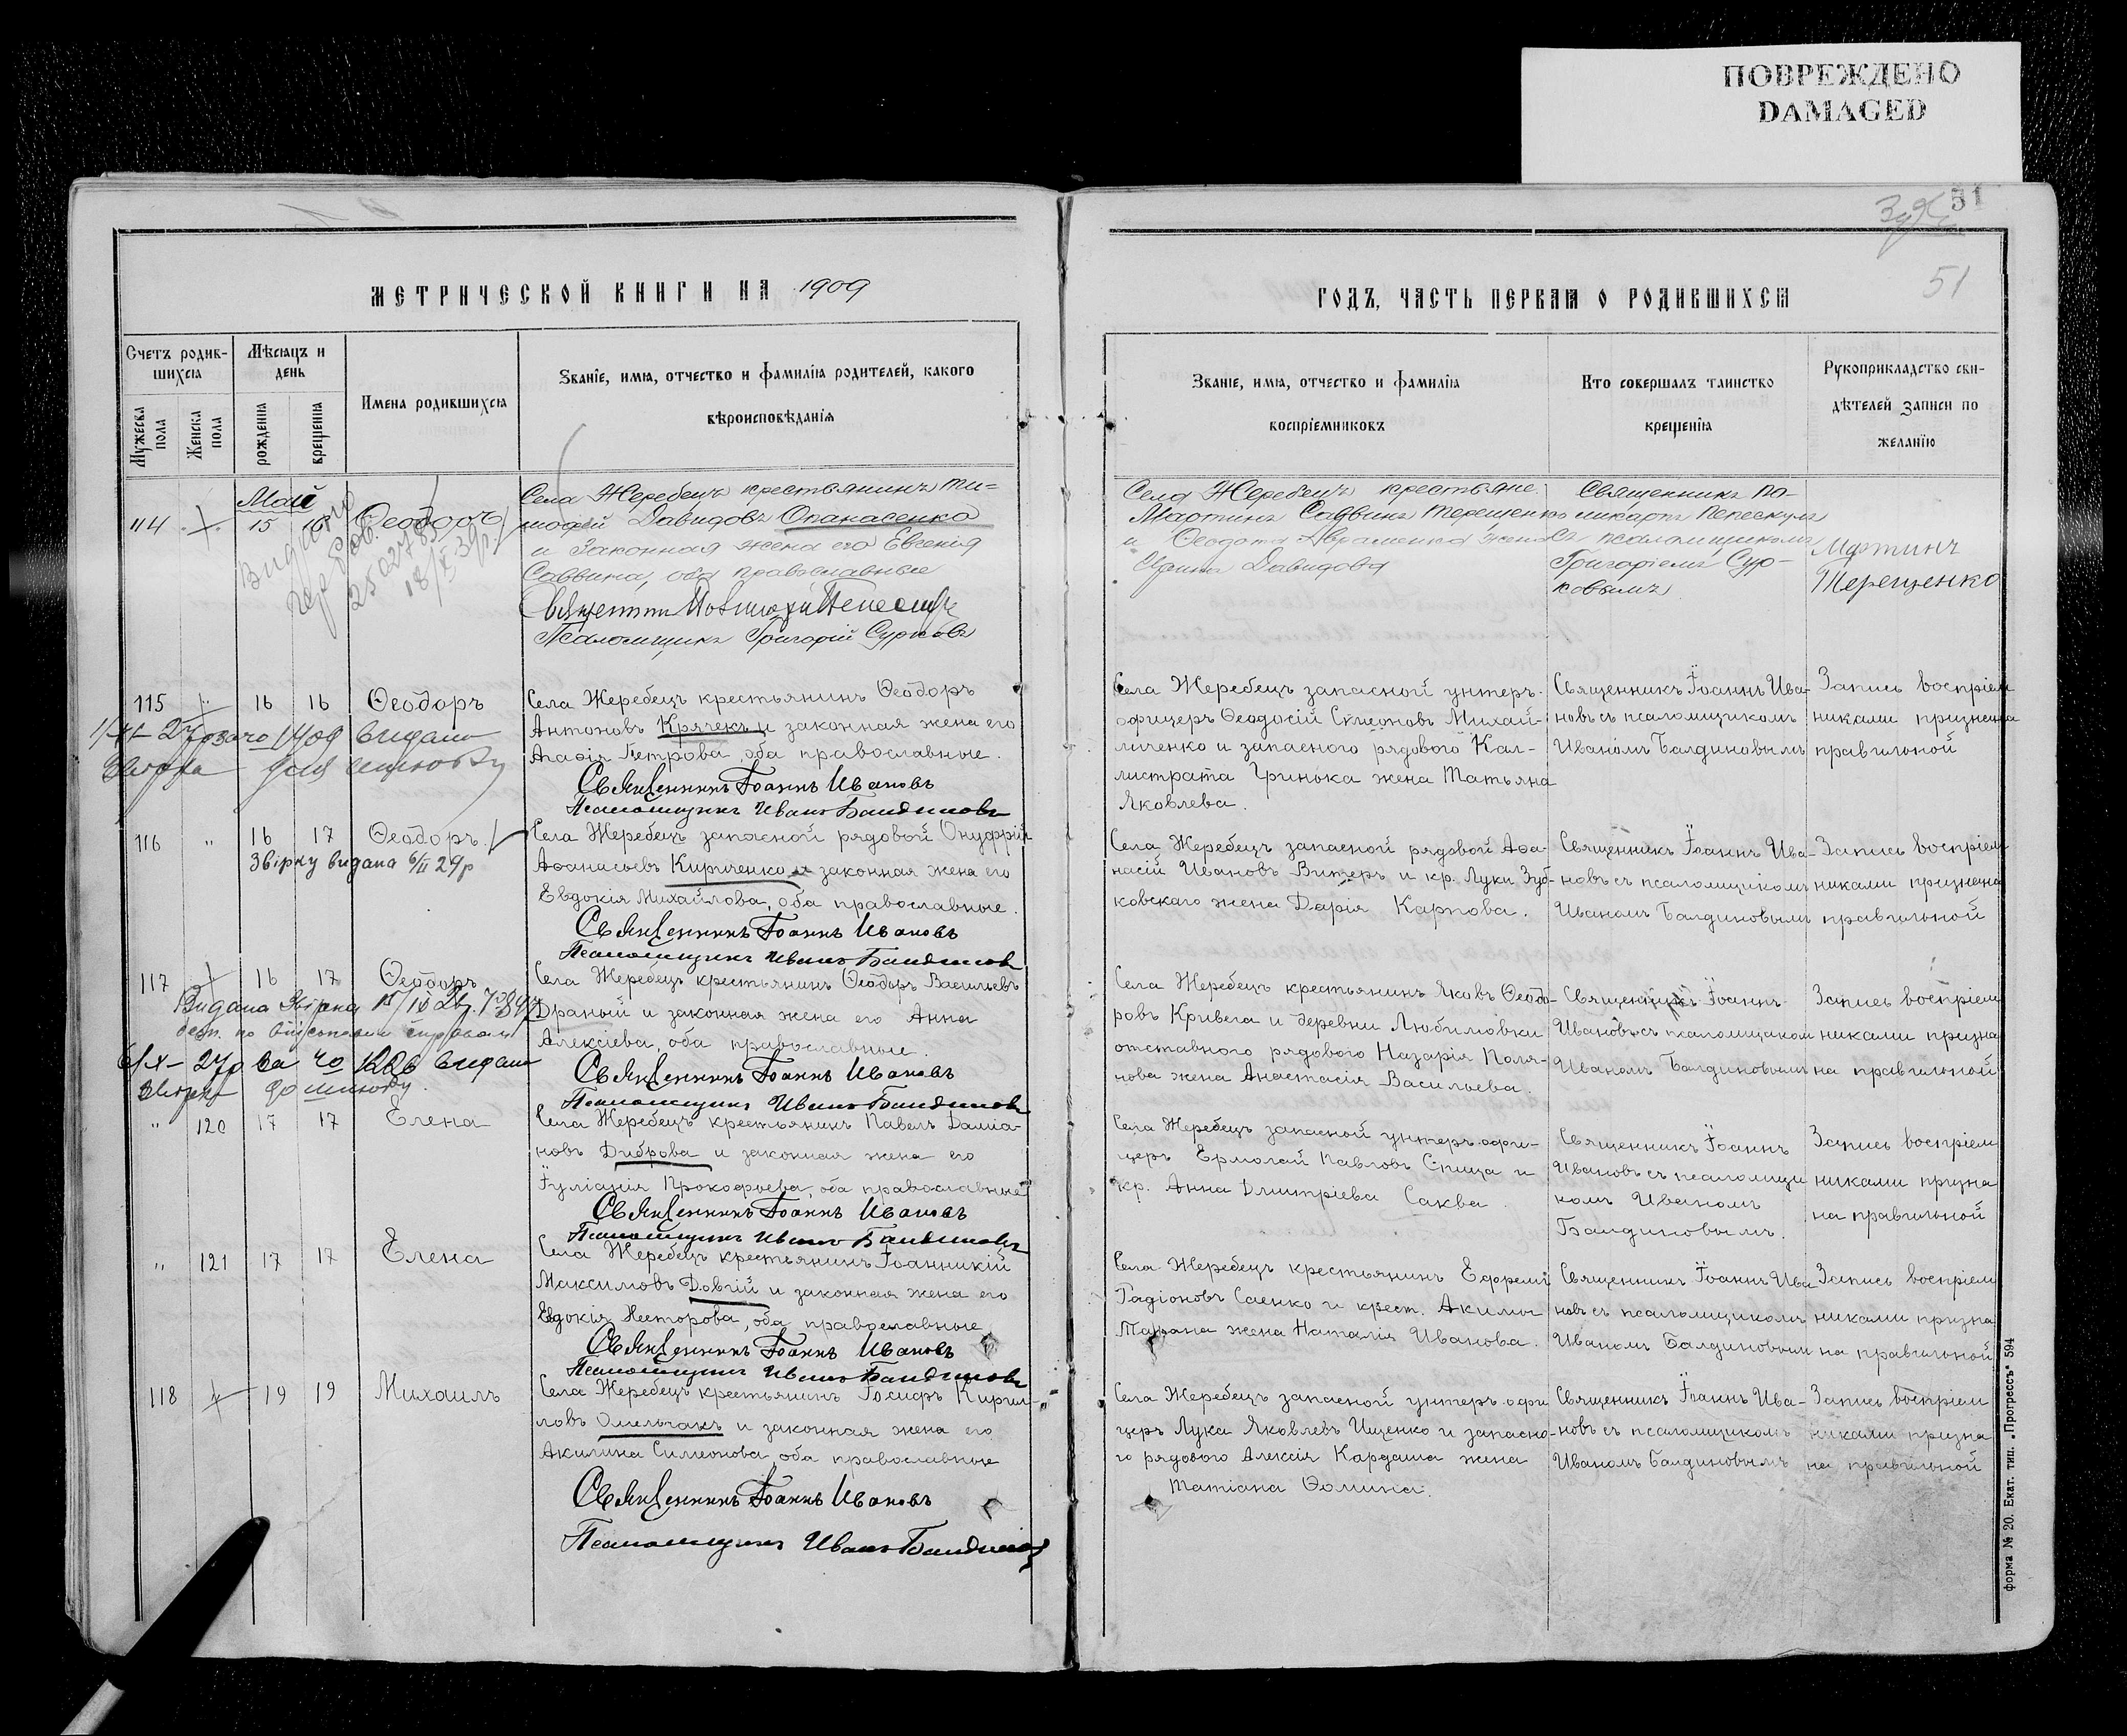 ПОВРЕЖДЕНО
DAMAGED
51
51
МЕТРИЧЕСКОЙ КНИГИ НА 1909
ГОДЪ, ЧАСТЬ ПЕРВАЯ О РОДИВШИХСЯ
Счетъ родив-
шихся
Мужеска пола
Женска пола
Мѣсяцъ и
день
рожденія
крещенія
Имена родившихся
Званіе, имя, отчество и фамилія родителей, какого
вѣроисповѣданія
Званіе, имя, отчество и фамилія
воспріемниковъ
Кто совершалъ таинство
крещенія
Рукоприкладство сви-
дѣтелей записи по
желанію
Май
114 15 16 Ѳеодоръ
Видано
250278
18/X 39р.
Села Жеребецъ крестьянинъ Ти-
мофей Давидовъ Опанасенко
и законная жена его Евгенія
Саввина, оба православные
Псаломщикъ Григорій Сурковъ
Села Жеребецъ крестьяне:
Мартинъ Саввинъ Терещенко
и Ѳеодота Авраменка жена
Ирина Давидова
Священникъ По-
ликарпъ
съ псаломщикомъ
Григоріемъ Сур-
ковымъ
Мартинъ
Терещенко
115 16 16 Ѳеодоръ
видано
для шлюбу
Села Жеребецъ крестьянинъ Ѳеодоръ
Антоновъ Крячекъ и законная жена его
Агафія Петрова, оба православные.
Священникъ Іоаннъ Ивановъ
Псаломщикъ Иванъ Балдиновъ
Села Жеребецъ запасной унтеръ-
офицеръ Ѳеодосій Сѵмеоновъ Михай-
личенко и запасного рядового Кал-
листрата Гринька жена Татьяна
Яковлева.
Священникъ Іоаннъ Ива-
новъ съ псаломщикомъ
Иваномъ Балдиновымъ
Запись воспріем
никами признана
правильной
116 " 16 17 Ѳеодоръ.
Звірку видана 6/II 29р
Села Жеребецъ запасной рядовой Онуфрій
Аѳанасьевъ Кириченко и законная жена его
Евдокія Михайлова, оба православные.
Священникъ Іоаннъ Ивановъ
Псаломщикъ Иванъ Балдиновъ
Села Жеребецъ запасной рядовой Аѳа-
насій Ивановъ Витеръ и кр. Луки Зуб-
ковскаго жена Дарія Карпова.
Священникъ Іоаннъ Ива-
новъ съ псаломщикомъ
Иваномъ Балдиновымъ
Запись воспріем
никами признана
правильной
117 16 17 Ѳеодоръ
Видана Звірка
видано
до шлюбу.
Села Жеребецъ крестьянинъ Ѳеодоръ Васильевъ
Драный и законная жена его Анна
Алексіева, оба православные.
Священникъ Іоаннъ Ивановъ
Псаломщикъ Иванъ Балдиновъ
Села Жеребецъ крестьянинъ Яковъ Ѳеодо-
ровъ Кривега и деревни Любимовки
отставного рядового Назарія Поля-
кова жена Анастасія Васильева.
Священникъ Іоаннъ
Ивановъ съ псаломщиком
Иваномъ Балдиновымъ
Запись воспріем
никами призна
на правильной
" 120 17 17 Елена
Села Жеребецъ крестьянинъ Павелъ Даміа-
новъ Диброва и законная жена его
Іуліанія Прокофьева, оба православные
Священникъ Іоаннъ Ивановъ
Псаломщикъ Иванъ Балдиновъ
Села Жеребецъ запасной унтеръ-офи-
церъ Ермолай Павловъ Спица и
кр. Анна Дмитріева Саква
Священникъ Іоаннъ
Ивановъ съ псаломщи
комъ Иваномъ
Балдиновымъ.
Запись воспріем
никами призна
на правильной
" 121 17 17 Елена
Села Жеребецъ крестьянинъ Іоанникій
Максимовъ Довгій и законная жена его
Евдокія Несторова, оба православные
Священникъ Іоаннъ Ивановъ
Псаломщикъ Иванъ Балдиновъ
Села Жеребецъ крестьянинъ Ефремъ
Радіоновъ Саенко и крест. Акима
жена Наталія Иванова.
Священникъ Іоаннъ Ива
новъ съ псаломщикомъ
Иваномъ Балдиновым
Запись воспріем
никами призна
на правильной
118 19 19 Михаилъ
Села Жеребецъ крестьянинъ Іосифъ Кирил-
ловъ Омельчакъ и законная жена его
Акилина Симеонова, оба православные
Священникъ Іоаннъ Ивановъ
Псаломщикъ Иванъ Балдиновъ
Села Жеребецъ запасной унтеръ-офи
церъ Лука Яковлевъ Ищенко и запасно-
го рядового Алексія Кардаша жена
Татіана Ѳомина.
Священникъ Іоаннъ Ива-
новъ съ псаломщикомъ
Иваномъ Балдиновымъ
Запись воспріем
никами призна
на правильной
форма № 20. Екат. тип. „Прогрессъ“ 594